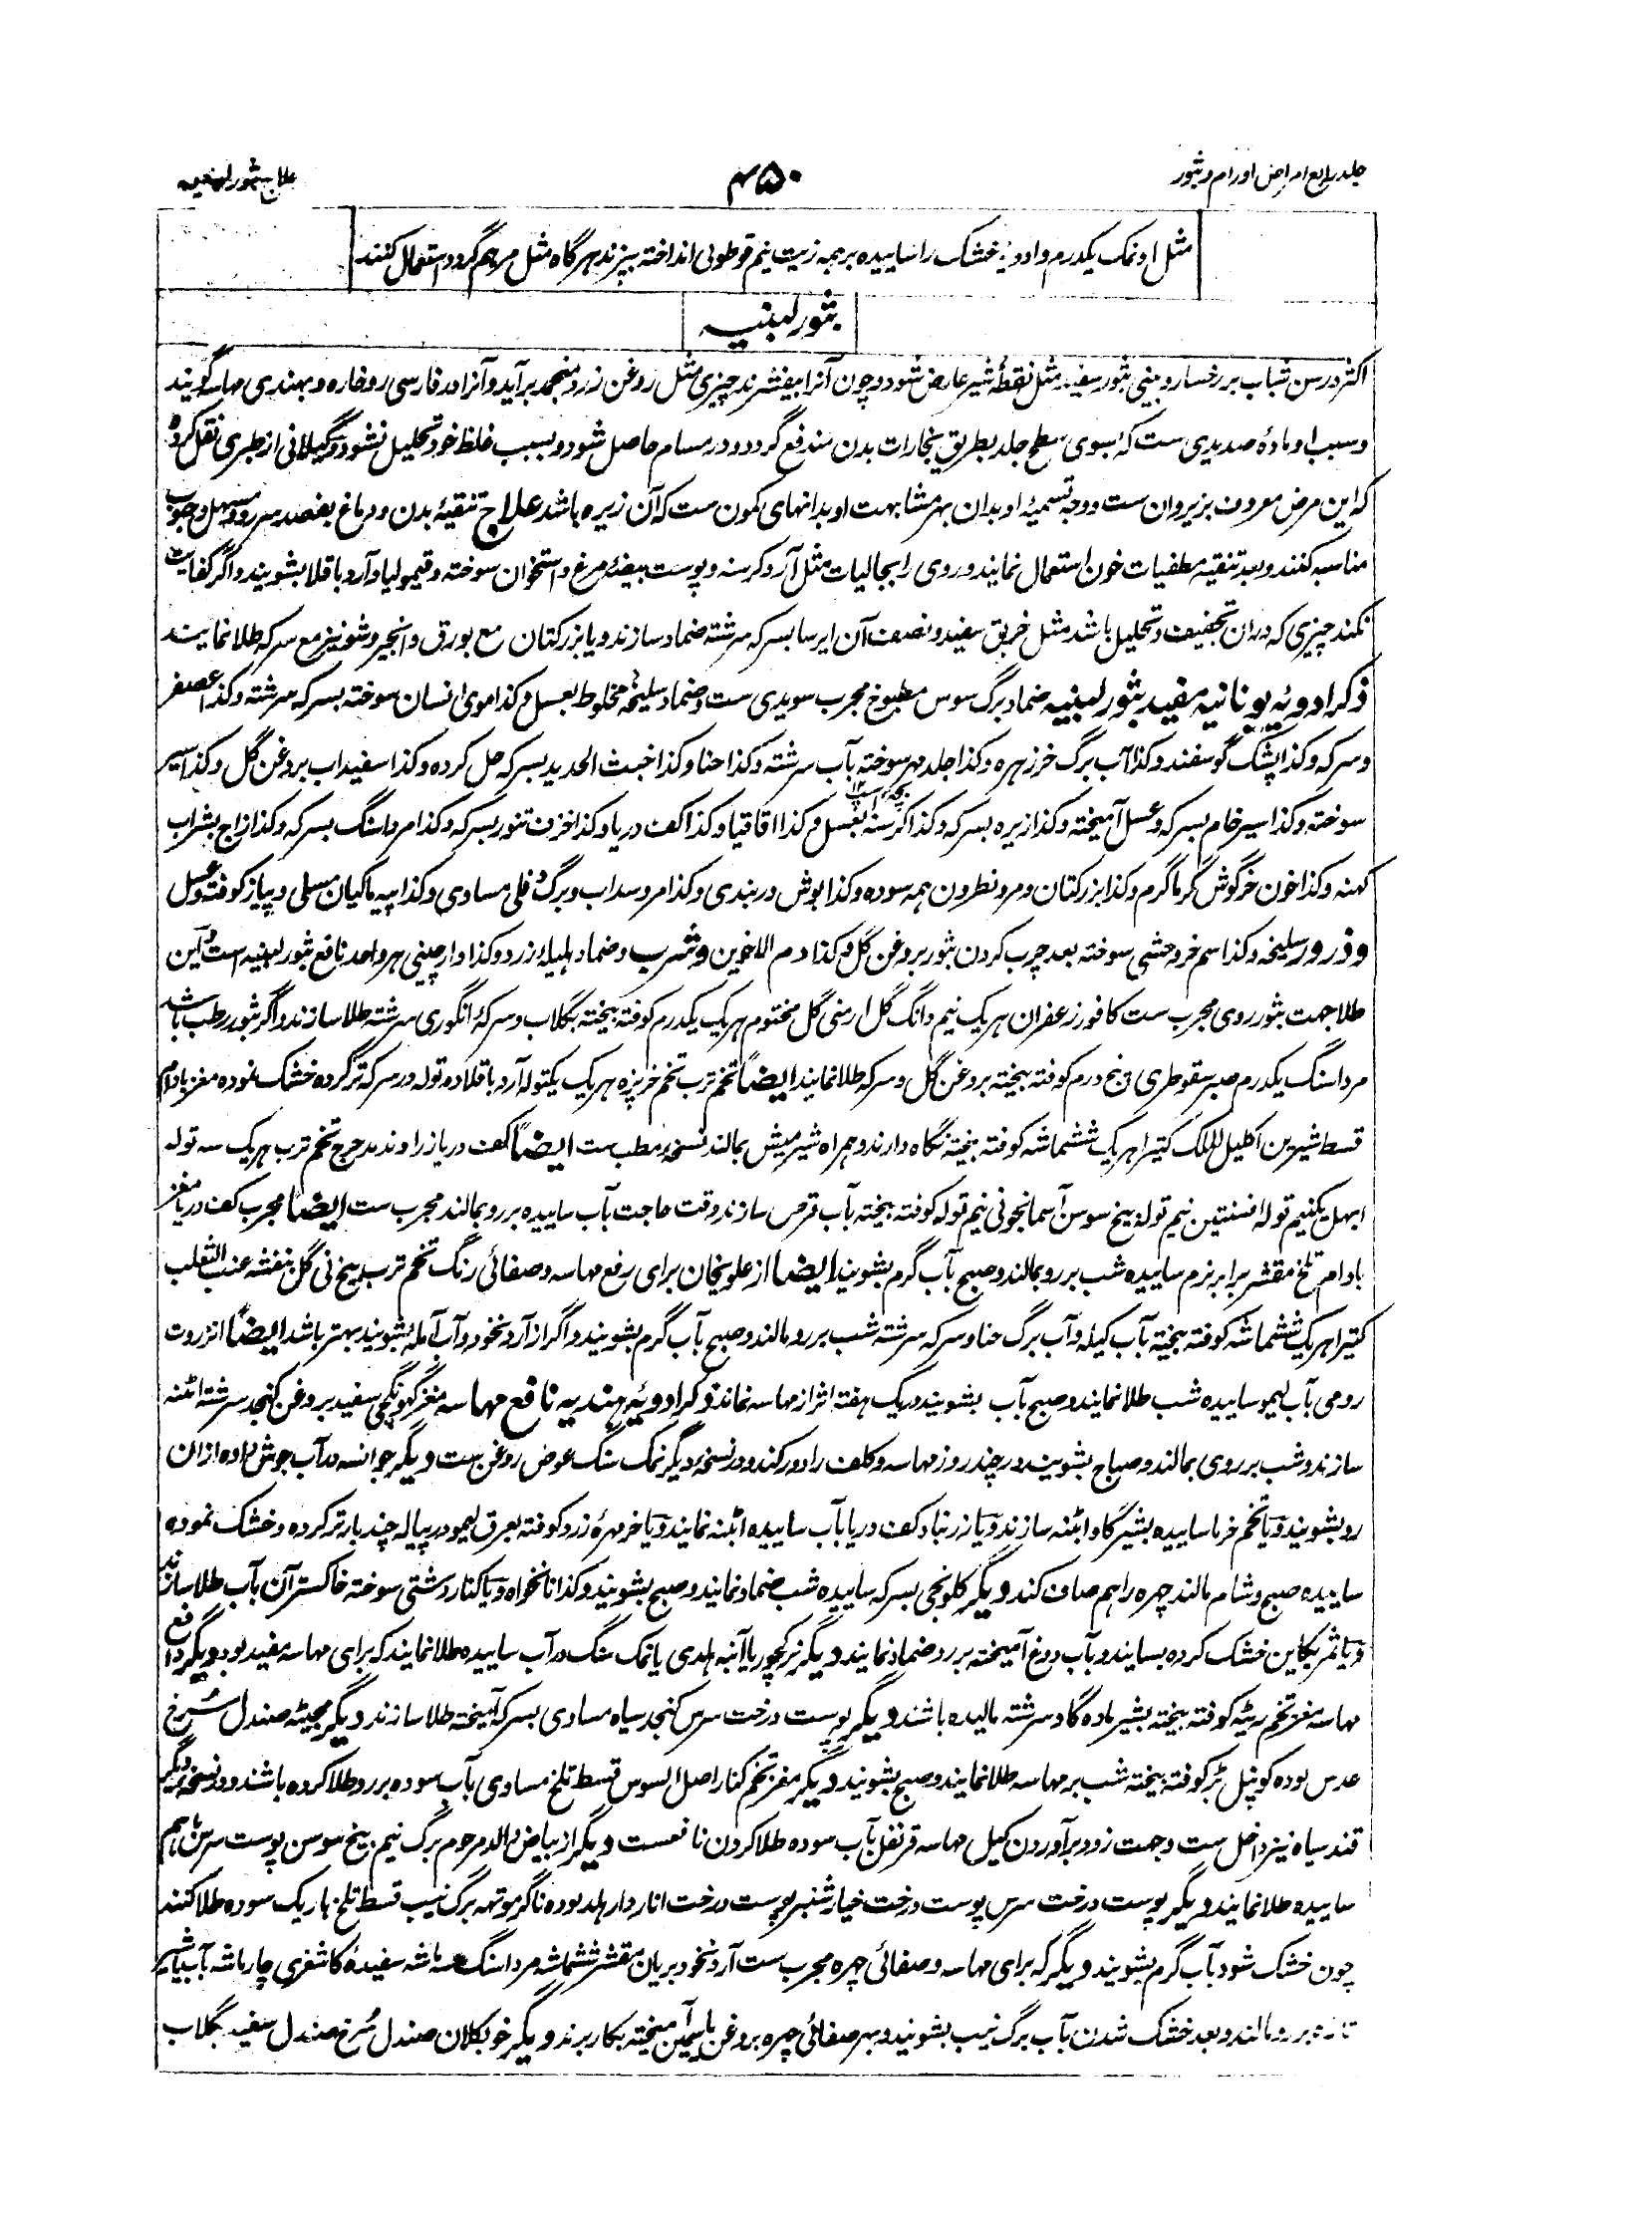 جلد رابع امراض اورام و بثور
۴۵۰
علاج بثور لبنیه
مثل او نمک یکدرم و ادویهٔ خشک را ساییده بر همه زیت نیم قوطولی انداخته بپزند هرگاه مثل مرهم گردد استعمال کنند
بثور لبنیه
اکثر در سن شباب بر رخسار و بینی بثور سفید مثل نقطهٔ شیر عارض شود و چون آنرا بیفشرند چیزی مثل روغن زرد منجمد برآید و آنرا در فارسی روخاره و بهندی مهاسه گویند
و سبب او مادهٔ صدیدی ست که بسوی سطح جلد بطریق بخارات بدن مندفع گردد و در مسام حاصل شود و بسبب غلظ خود تحلیل نشود و گیلانی از طبری نقل کرده
که این مرض معروف بزیروان ست و وجه تسمیهٔ او بدان بهر مشابهت او بدانهای کمون ست که آن زیره باشد علاج تنقیهٔ بدن و دماغ بفصد سررو و مسهل و حبوب
مناسبه کنند و بعد تنقیه مطفیات خون استعمال نمایند و روی را بجالیات مثل آرد کرسنه و پوست بیضهٔ مرغ و استخوان سوخته و قیمولیا و آرد باقلا بشویند و اگر کفایت
نکند چیزی که دران تجفیف و تحلیل باشد مثل خربق سفید و نصف آن ایرسا بسرکه سرشته ضماد سازند و یا بزر کتان مع بورق و انجیر و شونیز مع سرکه طلا نمایند
ذکر ادویهٔ یونانیه مفید بثور لبنیه ضماد برگ سوس مطبوخ مجرب سویدی ست و ضماد سلیخه مخلوط بعسل و کذا موی انسان سوخته بسرکه سرشته و کذا عصفر
و سرکه و کذا پشک گوسفند و کذا آب برگ خرزهره و کذا جلد مهر سوخته بآب سرشته و کذا حنا و کذا خبث الحدید بسرکه حل کرده و کذا سفیداب بروغن گل و کذا سیر
سوخته و کذا سیر خام بسرکه و عسل آمیخته و کذا زیره بسرکه و کذا کرسنه بعسل و کذا اقاقیا و کذا کف دریا و کذا خزف تنور بسرکه و کذا مرداسنگ بسرکه و کذا زاج بشراب
کهنه و کذا خون خرگوش گرماگرم و کذا بزر کتان و مر و نطرون همه سوده و کذا بوش دربندی و کذا مر و سداب و برگ دفلی مساوی و کذا پیه ماکیان مسلی و پیاز کوفته و عسل
و ذرور سلیخه و کذا سم خر وحشی سوخته بعد چرب کردن بثور بروغن گل و کذا دم الاخوین و شرب و ضماد هلیله زرد و کذا دارچینی هر واحد نافع بثور لبنیه است و این
طلا جهت بثور روی مجرب ست کافور زعفران هر یک نیم دانگ گل ارمنی گل مختوم هر یک یکدرم کوفته بیخته بگلاب و سرکهٔ انگوری سرشته طلا سازند و اگر بثور رطب باشد
مرداسنگ یکدرم صبر سقوطری پنج درم کوفته بیخته بروغن گل و سرکه طلا نمایند ایضاً تخم ترب تخم خرپزه هر یک یکتوله آرد باقلا دو توله در سرکه تر کرده خشک نموده مغز بادام
قسط شیرین اکلیل الملک کتیرا هر یک ششماشه کوفته بیخته نگاه دارند و همراه شیر میش بمالند نسخهٔ مطب ست ایضاً کف دریا زراوند مدحرج تخم ترب هر یک سه توله
ابهل یکنیم توله افسنتین نیم توله بیخ سوسن آسمانجونی نیم توله کوفته بیخته بآب قرص سازند وقت حاجت بآب ساییده بر رو بمالند مجرب ست ایضا مجرب کف دریا مغز
بادام تلخ مقشر برابر نرم ساییده شب بر رو بمالند و صبح بآب گرم بشویند ایضا از علویخان برای رفع مهاسه و صفائی رنگ تخم ترب بیخ نی گل بنفشه عنب الثعلب
کتیرا هر یک ششماشه کوفته بیخته بآب کیله و آب برگ حنا و سرکه سرشته شب بر رو مالند و صبح بآب گرم بشویند و اگر از آرد نخود و آب آمله بشویند بهتر باشد ایضاً انزروت
رومی بآب لیمو ساییده شب طلا نمایند و صبح بآب بشویند در یک هفته اثر از مهاسه نماند ذکر ادویهٔ هندیه نافع مهاسه مغز گهونگچی سفید بروغن کنجد سرشته ابٹنه
سازند و شب بر روی بمالند و صباح بشویند در چند روز مهاسه و کلف را دور کند و در نسخهٔ دیگر نمک سنگ عوض روغن ست دیگر جوانسه در آب جوش داده ازان
رو بشویند و یا تخم خرما ساییده بشیر گاو ابٹنه سازند و یا زرنباد کف دریا بآب ساییده ابٹنه نمایند و یا خرمهرهٔ زرد کوفته بعرق لیمو در پیاله چند بار تر کرده و خشک نموده
ساییده صبح و شام مالند چهره را هم صاف کند دیگر کلونجی بسرکه ساییده شب ضماد نمایند و صبح بشویند و کذا نانخواه و یا کنار دشتی سوخته خاکستر آن بآب طلا سازند
و یا ثمر بکاین خشک کرده بسایند و بآب دوغ آمیخته بر رو ضماد نمایند دیگر نرکچور یا آنبه هلدی یا نمک سنگ در آب ساییده طلا نمایند که برای مهاسه مفید بود دیگر دافع
مهاسه مغز تخم ریٹه کوفته بیخته بشیر ماده گاو سرشته مالیده باشند دیگر پوست درخت سرس کنجد سیاه مساوی بسرکه آمیخته طلا سازند دیگر مجیٹه صندل سرخ
عدس لوده کونپل بڑ کوفته بیخته شب بر مهاسه طلا نمایند و صبح بشویند دیگر مغز تخم کنار اصل السوس قسط تلخ مساوی بآب سوده بر رو طلا کرده باشند و در نسخهٔ دیگر
قند سیاه نیز داخل ست و جهت زود برآوردن کیل مهاسه قرنفل بآب سوده طلا کردن نافعست دیگر از بیاض والد مرحوم برگ نیم بیخ سوسن پوست سرس باهم
ساییده طلا نمایند دیگر پوست درخت سرس پوست درخت خیارشنبر پوست درخت انار دارهلد لوده ناگرموتهه برگ نیب قسط تلخ باریک سوده طلا کنند
چون خشک شود بآب گرم بشویند دیگر که برای مهاسه و صفائی چهره مجرب ست آرد نخود بریان مقشر ششماشه مرداسنگ سه ماشه سفیدهٔ کاشغری چار ماشه بآب یا شیر
تازه بر رو مالند و بعد خشک شدن بآب برگ نیب بشویند و بهر صفائی چهره بروغن یاسمین آمیخته بکار برند دیگر خوبکلان صندل سرخ صندل سفید بگلاب